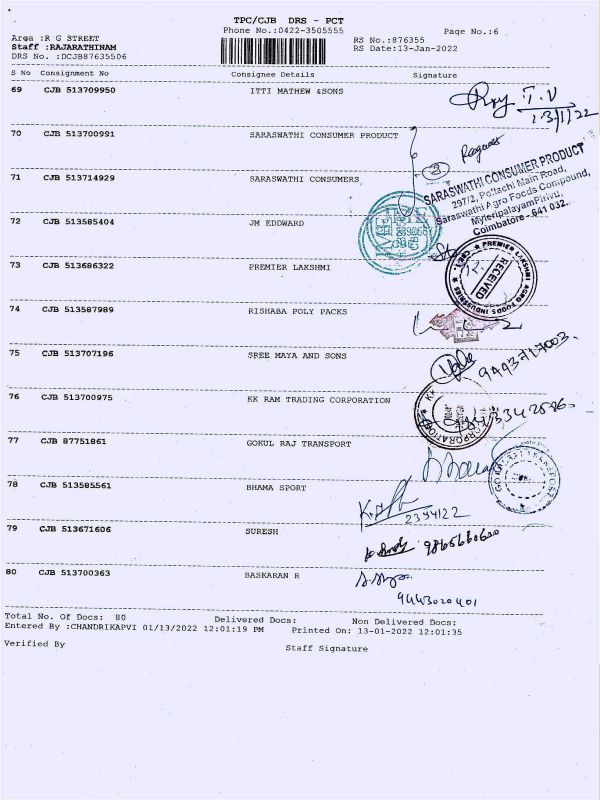 TPC/CJB DRS - PCT
Phone No.:0422-3505555
Page No.:6
Area :R G STREET
Staff :RAJARATHINAM
DRS No. :DCJB87635506
RS No.:876355
RS Date:13-Jan-2022
S No Consignment No Consignee Details Signature
69 CJB 513709950 ITTI MATHEW &SONS
T.V
13/1/22
70 CJB 513700991 SARASWATHI CONSUMER PRODUCT
71 CJB 513714929 SARASWATHI CONSUMERS
SARASWATHI CONSUMER PRODUCT
297/2, Pollachi Main Road,
Saraswathi Agro Foods Compound,
Myleripalayam Pirivu,
Coimbatore - 641 032.
72 CJB 513585404 JM EDDWARD
73 CJB 513686322 PREMIER LAKSHMI
PREMIER LAKSHMI AGRO FOODS INDUSTRIES
RECEIVED
74 CJB 513587989 RISHABA POLY PACKS
75 CJB 513707196 SREE MAYA AND SONS
9443717003
76 CJB 513700975 KK RAM TRADING CORPORATION
CORPORATION
77 CJB 87751861 GOKUL RAJ TRANSPORT
78 CJB 513585561 BHAMA SPORT
2394122
79 CJB 513671606 SURESH
9865660600
80 CJB 513700363 BASKARAN R
9443020401
Total No. Of Docs: 80 Delivered Docs: Non Delivered Docs:
Entered By :CHANDRIKAPVI 01/13/2022 12:01:19 PM Printed On: 13-01-2022 12:01:35
Verified By Staff Signature